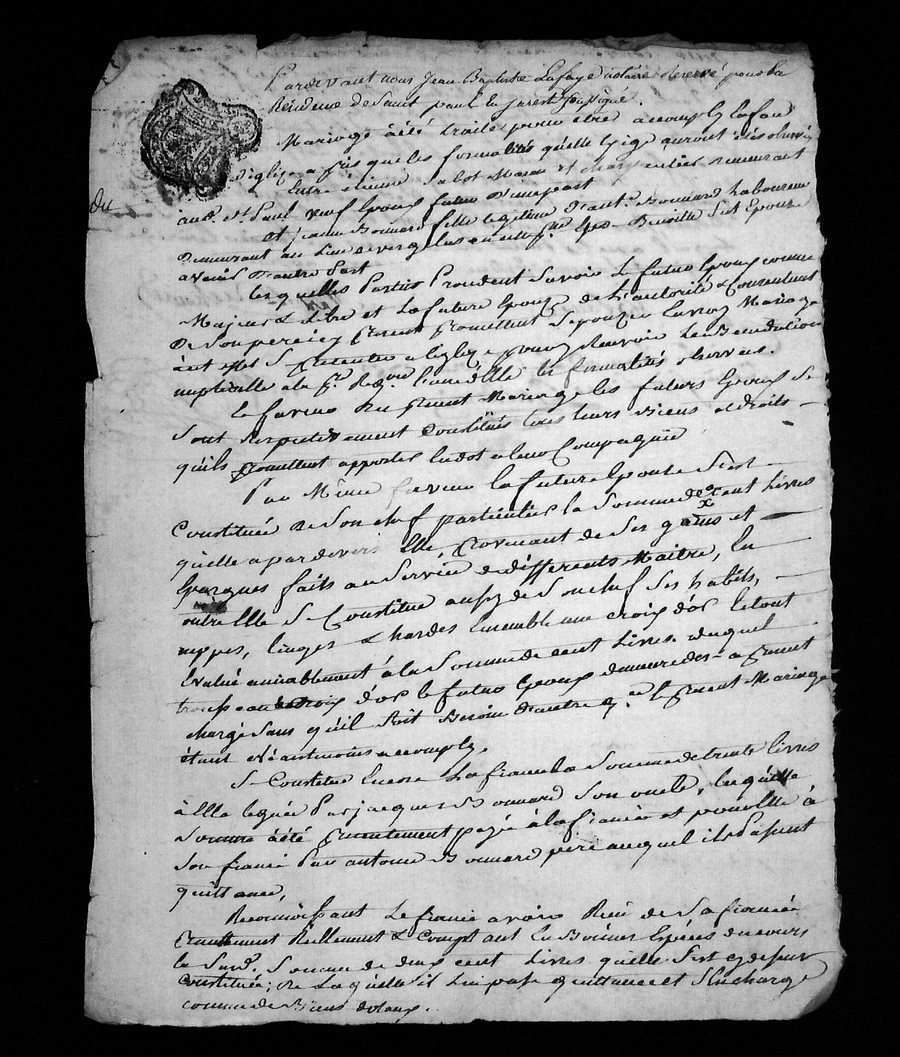 Pardevant nous Jean Baptiste Lafaye notaire Reservé pour la
Residence de Saint paul en Jarest soussigné.
Mariage a été traité pour etre accomply lafau
d'église a fis que les formalités qu'elle Exige auront étés observés
Entre étienne Maçon et charpentier demeurant
aud. st Paul veuf Epoux futur d'une part
Et jeanne Bonnard fille legitime d'ant. Bonnard Laboureur
Demeurant au Lieu de verg Benoitte son Epouse
a venir D'autre Part
lesquelles Parties Procedent Savoir Le futur Epoux comme
Majeur & Libre et La future Epouse de L'autorité & Consentement
De Son pere icy present promettent Sepouzer En vray Mariage
a cet effet Se presenter a l'eglise pour y Recevoir La Benediction
nuptialle a la pre. Req.on l'une d'elle les formalités observées.
En faveur du present Mariage les futurs Epoux Se
Sont Respectivement Constitués tous leurs biens et droits
quils promettent apporter En dot a leur Compagnie
Par Même faveur La future Epouse S'est
Constituée de Son chef particulier la Somme de cent Livres
quelle a par devers Elle, Provenant de Ses gains et
Epargnes faits au Service de differents Maitre, En
outre Elle Se Constitue aussy de Son chef Ses habits,
nippes, Linges & hardes Ensemble une croix d'or Le tout
Evalué amiablement à la Somme de cent Livres. duquel
trousseau & croix d'or le futur Epoux demeure des a present
chargé Sans qu'il Soit Besoin d'autre q.ce le present Mariage
étant néantmoins accomply.
Se Constitue Encore La fiancée la Somme de trente livres
à Elle leguée Par jacques Bonnard Son oncle, laquelle
Somme a été presentement payée à la fiancée et pour Elle à
Son fiancé Par antoine Bonnard pere auquel ils Passent
quittance,
Reconnoissant Le fiancé avoir Reçu de Sa fiancée
presentement Reellement & Comptant En Bonnes Espèces du cours
la Susd. Somme de deux cent Livres quelle S'est cy dessus
constituée; de Laquelle il Lui passe quittance et S'En charge
comme de Biens dotaux.
Du